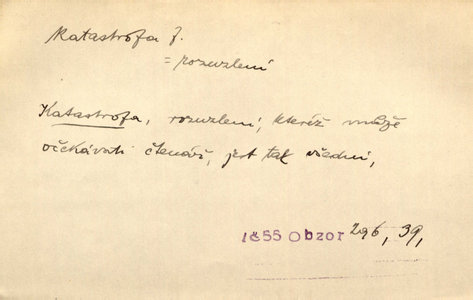 Katastrofa f.
= rozuzlení
Katastrofa, rozuzlení, kteréž může
očekávati čtenář, jest tak všední,
1855 Obzor 296, 39,